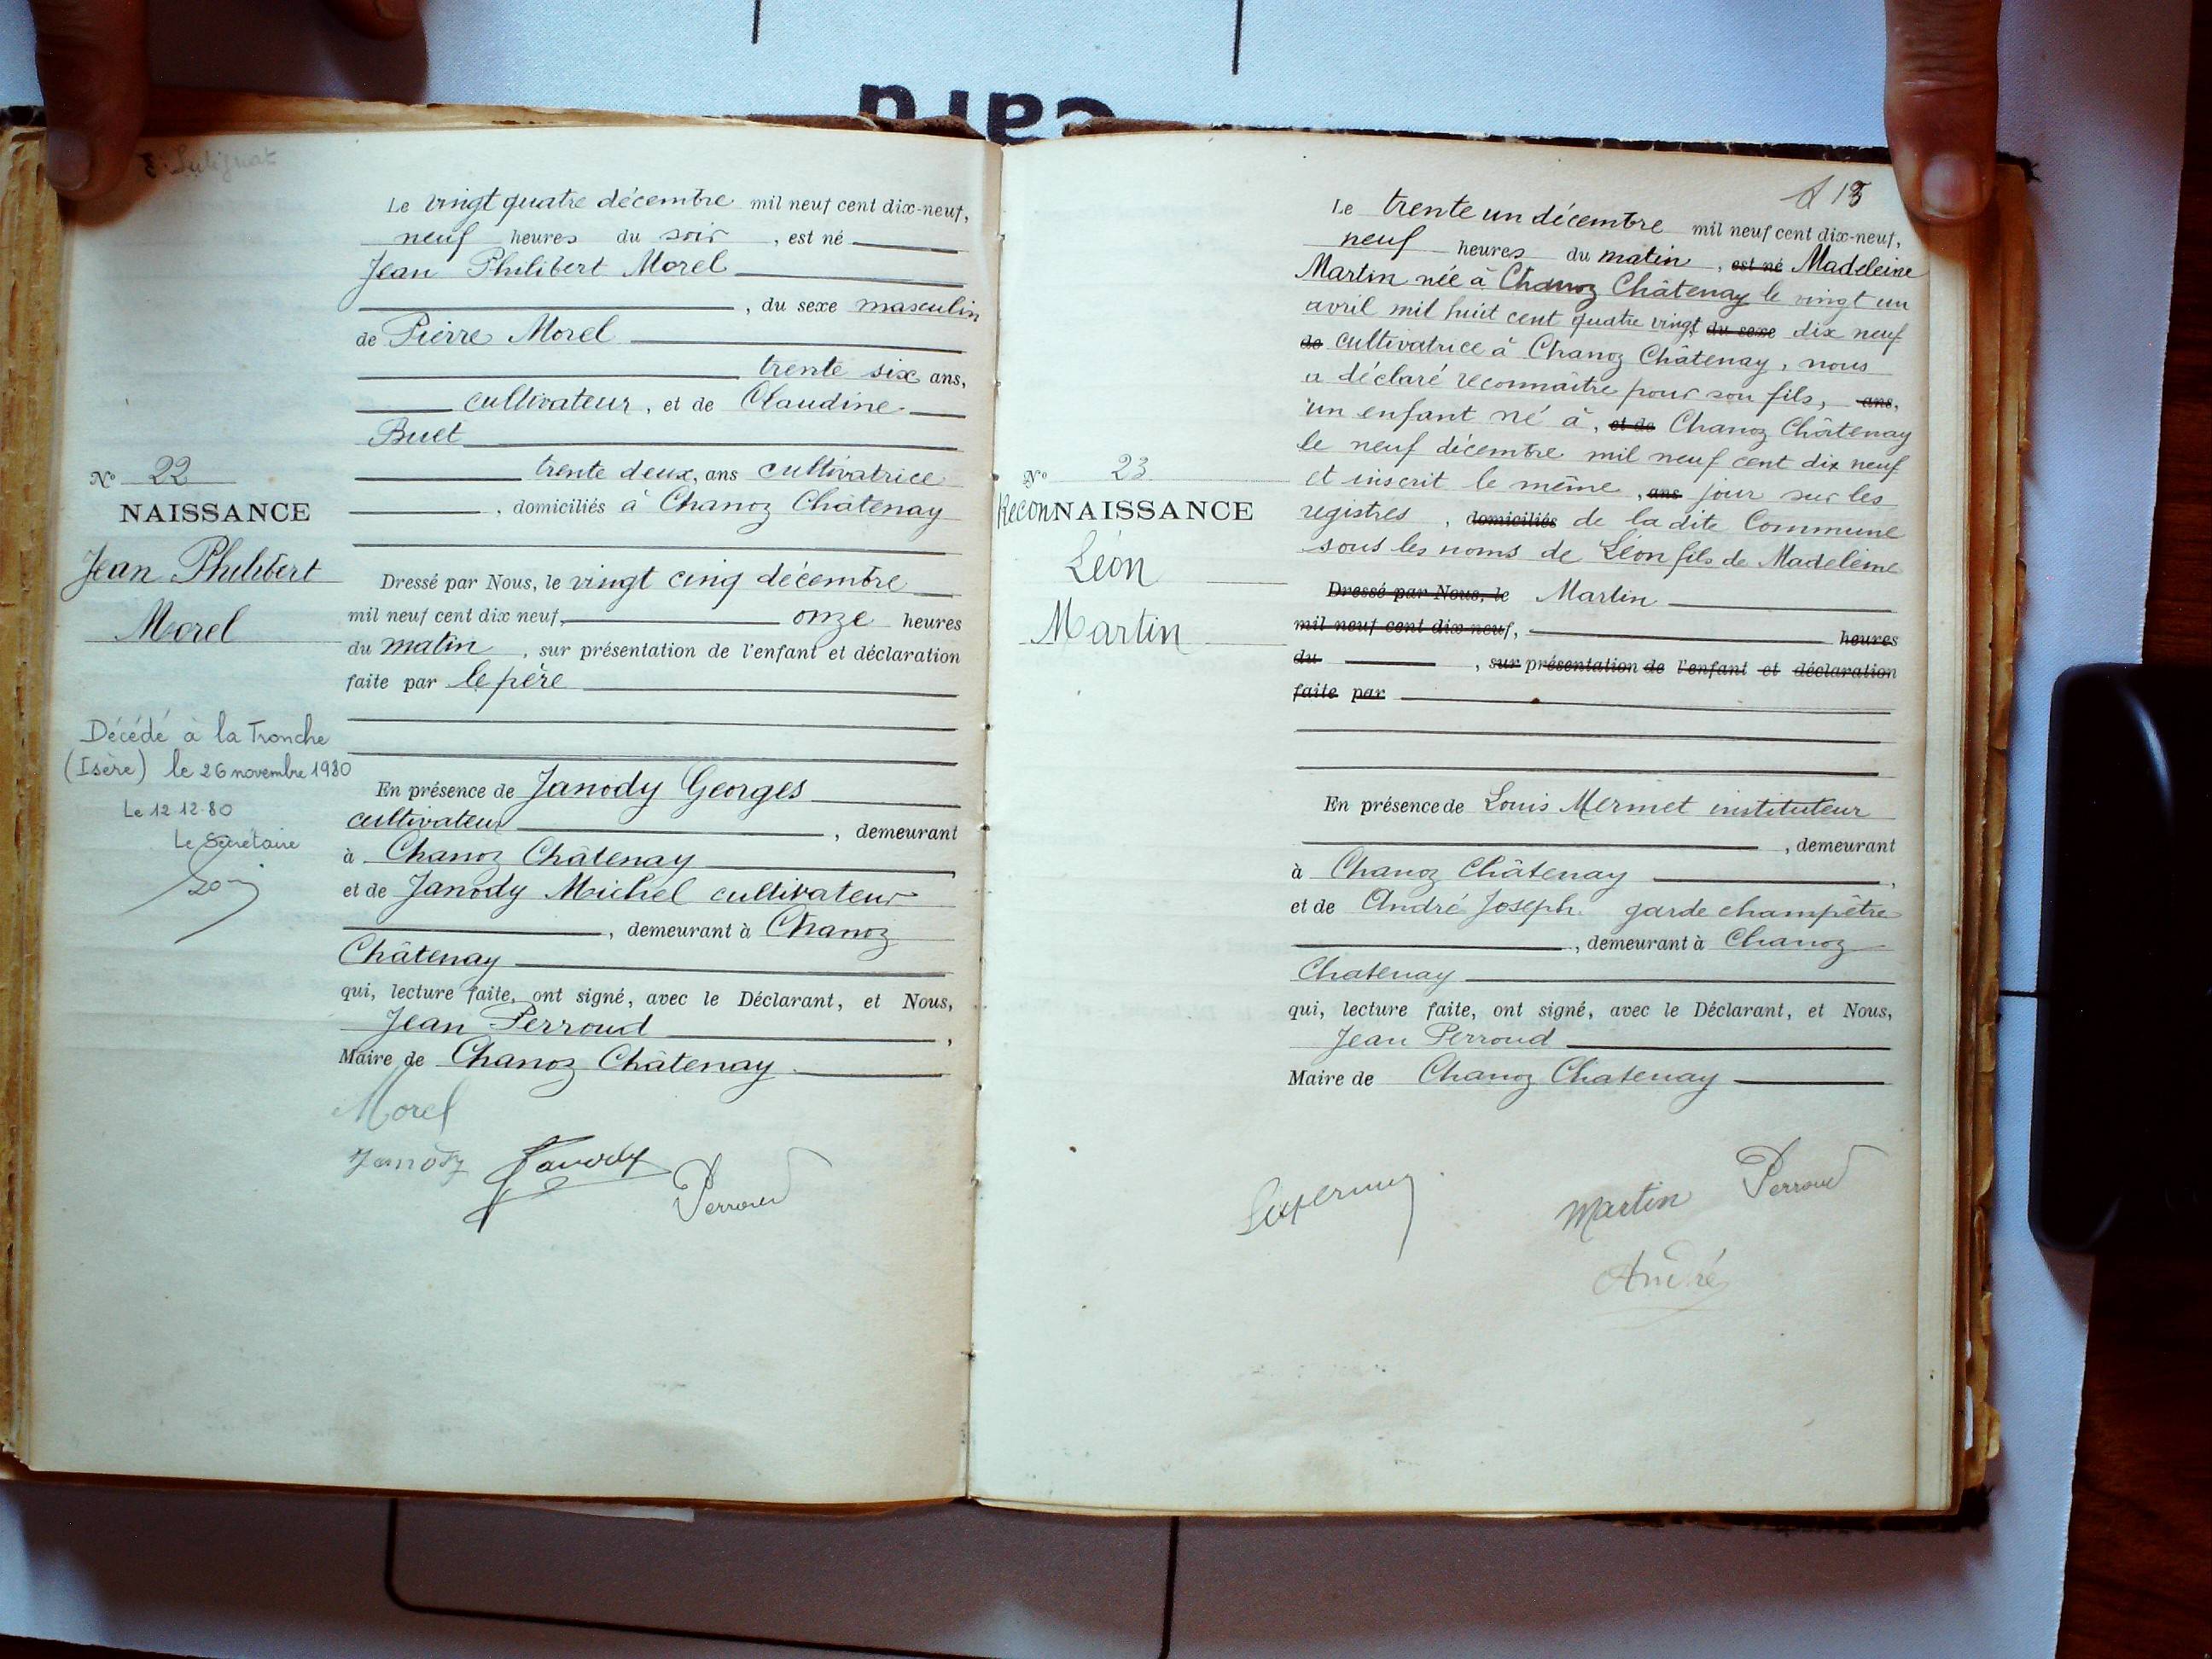 Le vingt quatre décembre mil neuf cent dix-neuf,
neuf heures du soir, est né
Jean Philibert Morel
, du sexe masculin
de Pierre Morel
trente six ans,
cultivateur, et de Claudine
Buet
trente deux, ans cultivatrice
, domiciliés à Chanoz Châtenay
Nº 22
NAISSANCE
Jean Philibert
Morel
Dressé par Nous, le vingt cinq décembre
mil neuf cent dix neuf, onze heures
du matin, sur présentation de l'enfant et déclaration
faite par le père
Décédé à la Tronche
(Isère) le 26 novembre 1980
Le 12.12.80
Le Secrétaire
En présence de Janody Georges
cultivateur, demeurant
à Chanoz Châtenay
et de Janody Michel cultivateur
, demeurant à Chanoz
Châtenay
qui, lecture faite, ont signé, avec le Déclarant, et Nous,
Jean Perroud,
Maire de Chanoz Châtenay
Morel
Janody Janody Perroud
Le trente un décembre mil neuf cent dix-neuf,
neuf heures du matin, est né Madeleine
Martin née à Chanoz Châtenay le vingt un
avril mil huit cent quatre vingt du sexe dix neuf
de cultivatrice à Chanoz Châtenay, nous
a déclaré reconnaître pour son fils, ans,
un enfant né à, et de Chanoz Châtenay
le neuf décembre mil neuf cent dix neuf
et inscrit le même, ans jour sur les
registres, domiciliés de la dite Commune
sous les noms de Léon fils de Madeleine
Nº 23
ReconNAISSANCE
Léon
Martin
Dressé par Nous, le Martin
mil neuf cent dix neuf, heures
du, sur présentation de l'enfant et déclaration
faite par
En présence de Louis Mermet instituteur
, demeurant
à Chanoz Châtenay,
et de André Joseph garde champêtre
, demeurant à Chanoz
Chatenay
qui, lecture faite, ont signé, avec le Déclarant, et Nous,
Jean Perroud
Maire de Chanoz Chatenay
Martin Perroud
André